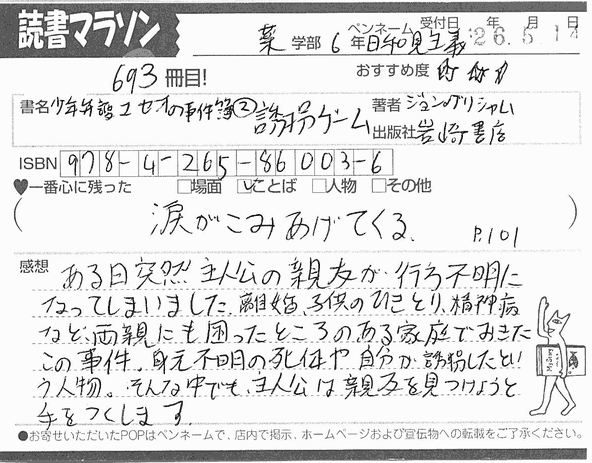 読書マラソン
ペンネーム 受付日 年 月 日
薬 学部 6年 日和見主義 '26.5.14
693冊目!
おすすめ度
書名 少年弁護士セオの事件簿② 誘拐ゲーム
著者 ジョン・グリシャム
出版社 岩崎書店
ISBN 978-4-265-86003-6
♥一番心に残った □場面 ☑ことば □人物 □その他
(涙がこみあげてくる。 P.101)
感想 ある日突然主人公の親友が行方不明に
なってしまいました。離婚、子供のひきとり、精神病
など、両親にも困ったところのある家庭でおきた
この事件。身元不明の死体や自分が誘拐したとい
う人物。そんな中でも、主人公は親友を見つけようと
手をつくします。
●お寄せいただいたPOPはペンネームで、店内で掲示、ホームページおよび宣伝物への転載をご了承ください。